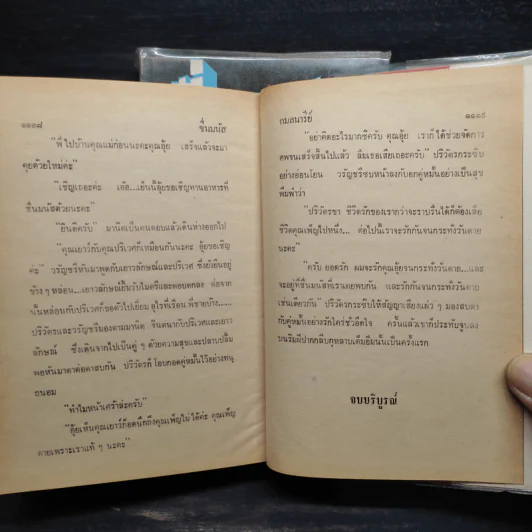 ๑๑๓๘ ชื่นมนัส
"พี่ไปบ้านคุณแม่ก่อนนะคะคุณอุ้ย เสร็จแล้วจะมา
คุยด้วยใหม่ค่ะ"
"เชิญเถอะค่ะ เออ...เย็นนี้อุ้ยขอเชิญทานอาหารที่
ชื่นมนัสด้วยนะคะ"
"ยินดีครับ" มานิตเป็นคนตอบแล้วเดินห่างออกไป
"คุณเยาว์กับคุณปริเวศก็เหมือนกันนะคะ อุ้ยขอเชิญ
ค่ะ" วรัญชรีหันมาพูดกับเยาวลักษณ์และปริเวศ ซึ่งยืนอยู่
ข้าง ๆ หล่อน...เยาวลักษณ์ยิ้มรับไมตรีและตอบตกลง ต่อจาก
นั้นหล่อนกับปริเวศก็ขอตัวไปเยี่ยม
ปริวัตรและวรัญชรีมองตามมานิต จินตนากับปริเวศและเยาว
ลักษณ์ ซึ่งเดินจากไปเป็นคู่ ๆ ด้วยความสุขและปลาบปลื้ม
พอหันมาตาต่อตาสบกัน ปริวัตรก็โอบกอดคู่หมั้นไว้อย่างทนุ
ถนอม
"ทำไมหน้าเศร้าล่ะครับ"
"อุ้ยเห็นคุณเยาว์ก็อดนึกถึงคุณเพ็ญไม่ได้ค่ะ คุณเพ็ญ
ตายเพราะเราแท้ ๆ นะคะ"
กมลนารีย์ ๑๑๓๙
"อย่าคิดอะไรมากซิครับ คุณอุ้ย เราก็ได้ช่วยจัดการ
ศพจนเสร็จสิ้นไปแล้ว ลืมเธอเสียเถอะครับ" ปริวัตรกระซิบ
อย่างอ่อนโยน วรัญชรีซบหน้าลงกับอกคู่หมั้นอย่างเป็นสุข
พึมพำว่า
"ปริวัตรขา ชีวิตรักของเรากว่าจะราบรื่นได้ก็ต้องเสีย
ชีวิตคุณเพ็ญไปหนึ่ง... ต่อไปนี้เราจะรักกันจนกระทั่งวันตาย
นะคะ"
"ครับ ยอดรัก ผมจะรักคุณอุ้ยจนกระทั่งวันตาย...และ
จะอยู่ที่ชื่นมนัสที่เราเคยพบกัน และรักกันจนกระทั่งวันตาย
เช่นเดียวกัน" ปริวัตรกระซิบให้สัญญาเสียงแผ่ว ๆ มองสบตา
กับคู่หมั้นอย่างรักใคร่ชั่วอึดใจ ครั้นแล้วเขาก็ประทับจูบลง
บนริมฝีปากกลีบกุหลาบเต็มอิ่มนั้นเป็นครั้งแรก
จบบริบูรณ์